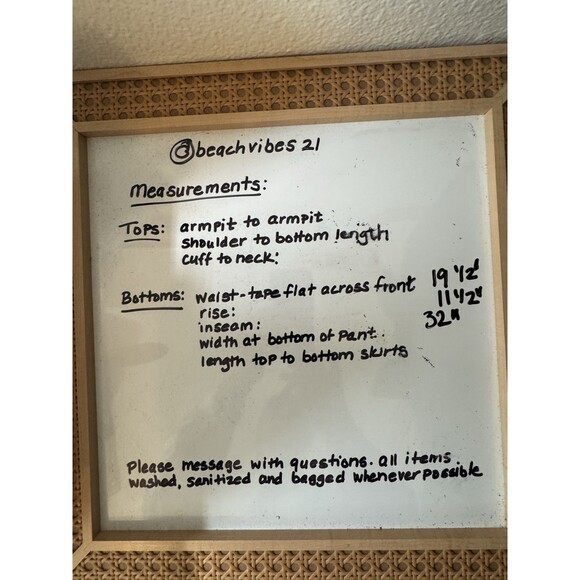 @beachvibes 21
Measurements:
Tops: armpit to armpit
shoulder to bottom length
cuff to neck:
Bottoms: waist-tape flat across front 19 1/2"
rise: 11 1/2"
inseam: 32"
width at bottom of pant.
length top to bottom skirts
Please message with questions. all items
washed, sanitized and bagged whenever possible